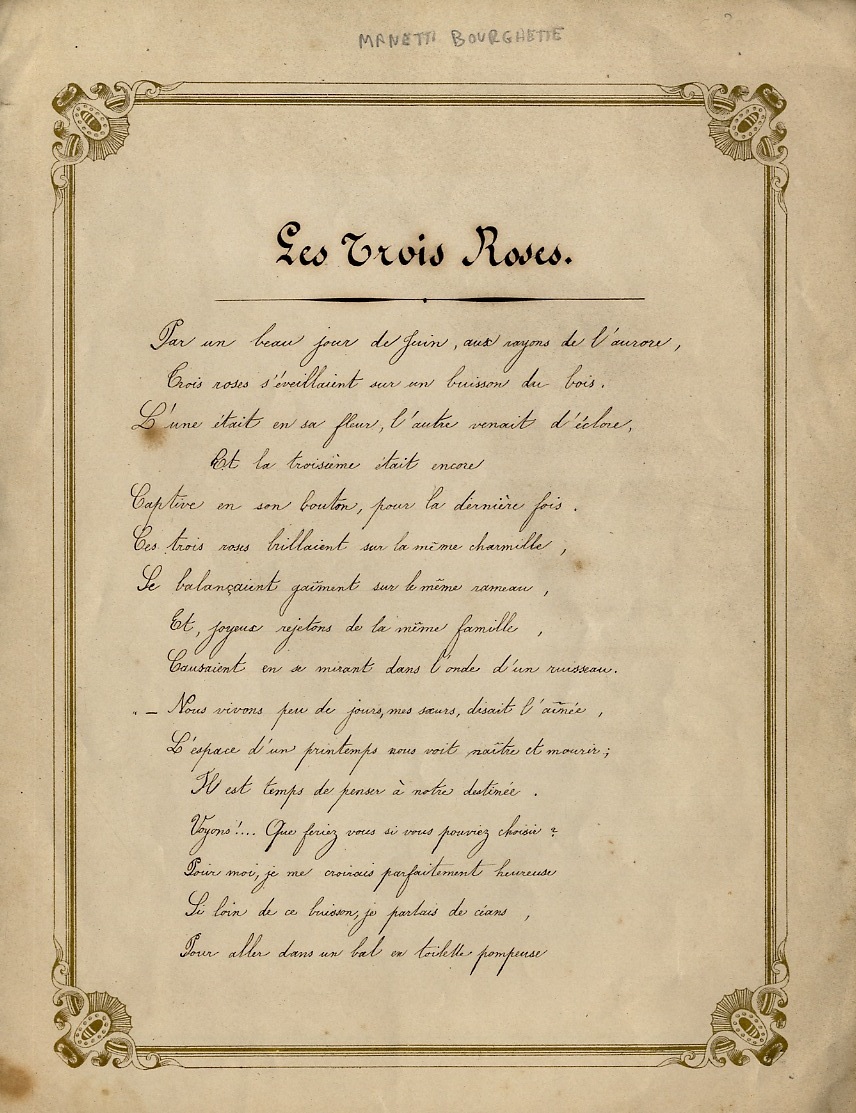 MANETTI BOURGHETTE
Les Trois Roses.
Par un beau jour de Juin, aux rayons de l'aurore,
Trois roses s'éveillaient sur un buisson du bois.
L'une était en sa fleur, l'autre venait d'éclore,
Et la troisième était encore
Captive en son bouton, pour la dernière fois.
Ces trois roses brillaient sur la même charmille,
Se balançaient gaîment sur le même rameau,
Et, joyeux rejetons de la même famille,
Causaient en se mirant dans l'onde d'un ruisseau.
"– Nous vivons peu de jours, mes sœurs, disait l'aînée,
L'espace d'un printemps nous voit naître et mourir;
Il est temps de penser à notre destinée.
Voyons!... Que feriez vous si vous pouviez choisir?
Pour moi, je me croirais parfaitement heureuse
Si loin de ce buisson, je partais de céans,
Pour aller dans un bal en toilette pompeuse